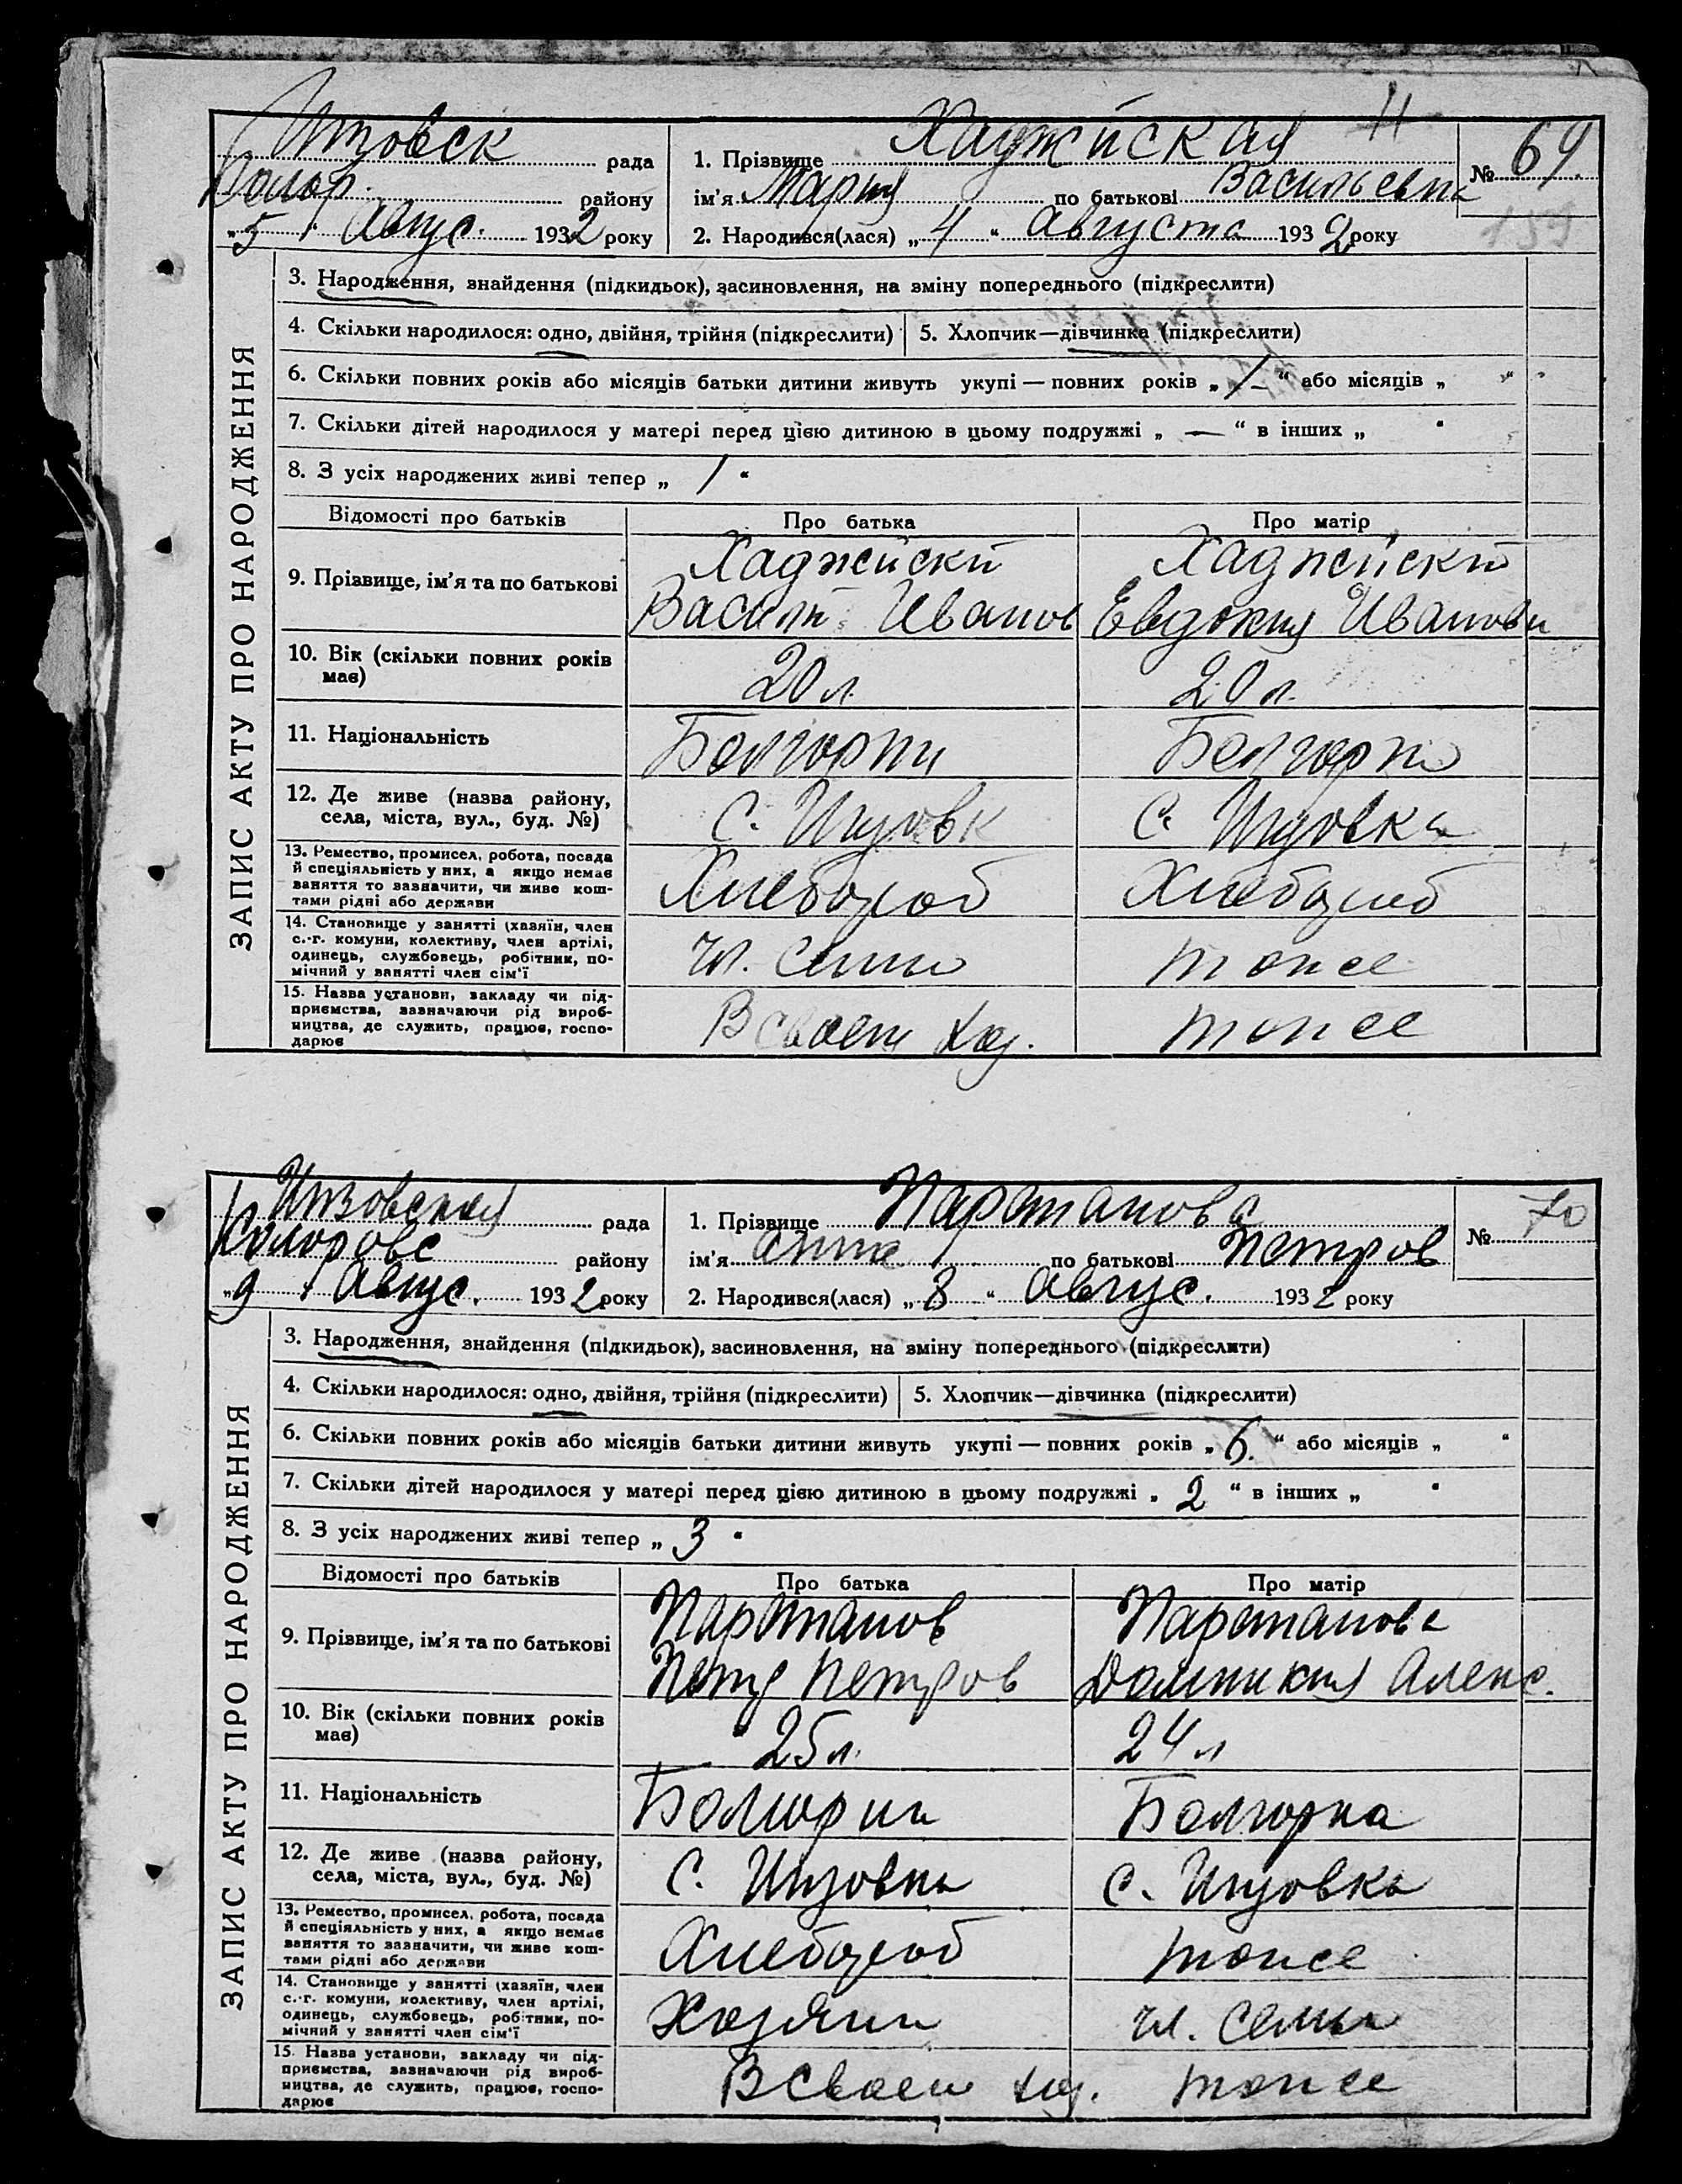 ЗАПИС АКТУ ПРО НАРОДЖЕННЯ
рада
1. Прізвище Хаджийская
№ 69.
Колор. району
ім'я Мария по батькові Васильевна
„5" Авгус. 1932 року
2. Народився(лася) „4" Августа 1932 року
3. Народження, знайдення (підкидьок), засиновлення, на зміну попереднього (підкреслити)
4. Скільки народилося: одно, двійня, трійня (підкреслити)
5. Хлопчик—дівчинка (підкреслити)
6. Скільки повних років або місяців батьки дитини живуть укупі — повних років „1" або місяців „ "
7. Скільки дітей народилося у матері перед цією дитиною в цьому подружжі „ — " в інших „ "
8. З усіх народжених живі тепер „ 1 "
Відомості про батьків Про батька Про матір
9. Прізвище, ім'я та по батькові
Хаджийски Хаджийски
Васили Иванов Евдокия Иванов
10. Вік (скільки повних років має)
20 л 20 л.
11. Національність
12. Де живе (назва району, села, міста, вул., буд. №)
13. Ремество, промисел, робота, посада й спеціяльність у них, а якщо немає заняття то зазначити, чи живе коштами рідні або держави
Хлебороб Хлебороб
14. Становище у занятті (хазяїн, член с.-г. комуни, колективу, член артілі, одинець, службовець, робітник, помічний у занятті член сім'ї
чл. семи тоже
15. Назва установи, закладу чи підприємства, зазначаючи рід виробництва, де служить, працює, господарює
В своем хоз. тоже
ЗАПИС АКТУ ПРО НАРОДЖЕННЯ
рада
1. Прізвище Парталова
№ 70
району
ім'я Анна по батькові Петров
„9" Авгус. 1932 року
2. Народився(лася) „8" Авгус. 1932 року
3. Народження, знайдення (підкидьок), засиновлення, на зміну попереднього (підкреслити)
4. Скільки народилося: одно, двійня, трійня (підкреслити)
5. Хлопчик—дівчинка (підкреслити)
6. Скільки повних років або місяців батьки дитини живуть укупі — повних років „6." або місяців „ "
7. Скільки дітей народилося у матері перед цією дитиною в цьому подружжі „ 2 " в інших „ "
8. З усіх народжених живі тепер „ 3 "
Відомості про батьків Про батька Про матір
9. Прізвище, ім'я та по батькові
Петр Петров Домникия Алекс.
10. Вік (скільки повних років має)
25 л. 24 л
11. Національність
Болгарка
12. Де живе (назва району, села, міста, вул., буд. №)
13. Ремество, промисел, робота, посада й спеціяльність у них, а якщо немає заняття то зазначити, чи живе коштами рідні або держави
Хлебороб тоже
14. Становище у занятті (хазяїн, член с.-г. комуни, колективу, член артілі, одинець, службовець, робітник, помічний у занятті член сім'ї
Хозяин чл. семьи
15. Назва установи, закладу чи підприємства, зазначаючи рід виробництва, де служить, працює, господарює
В своем хоз. тоже